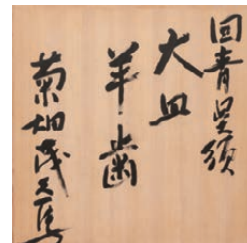 回青呉須
大皿
羊歯
菊畑茂久馬